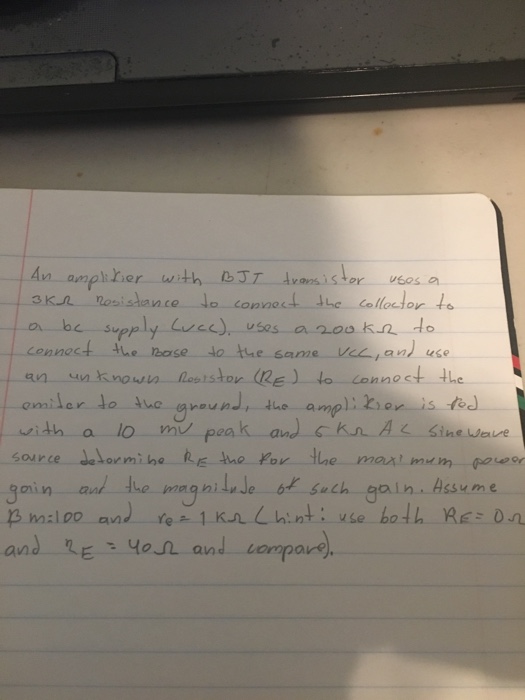 An amplikier with BJT transistor uses a
3KΩ Resistance to connect the collector to
a DC supply (VCC), uses a 200KΩ to
connect the Base to the same VCC, and use
an unknown Resistor (RE) to connect the
emiter to the ground, the amplikier is fed
with a 10 mV peak and 5KΩ AC sinewave
source determine RE the for the maximum power
gain and the magnitude of such gain. Assume
B m=100 and re = 1 KΩ (hint: use both RE= 0Ω
and RE = 40Ω and compare).